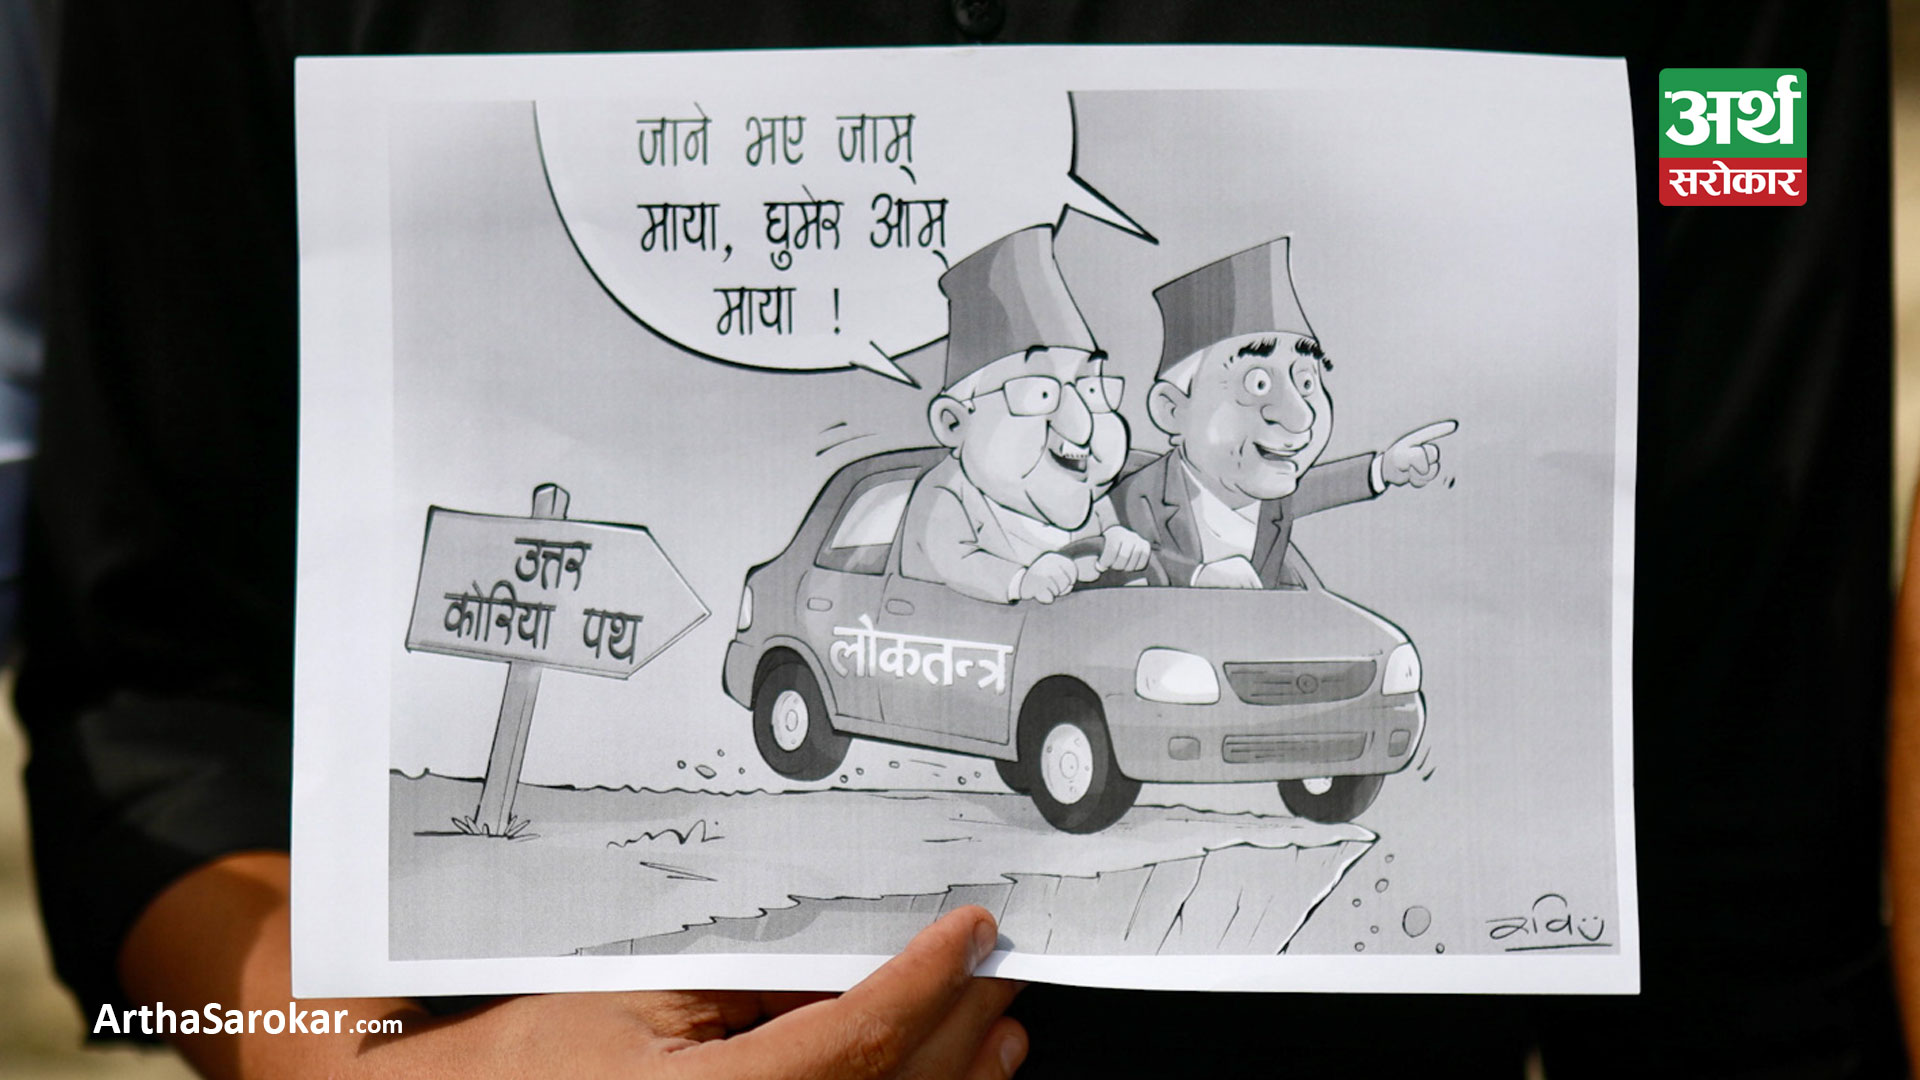 जाने भए जाम्
माया, घुमेर आम्
माया !
उत्तर
कोरिया पथ
लोकतन्त्र
रवि
अर्थ
सरोकार
ArthaSarokar.com